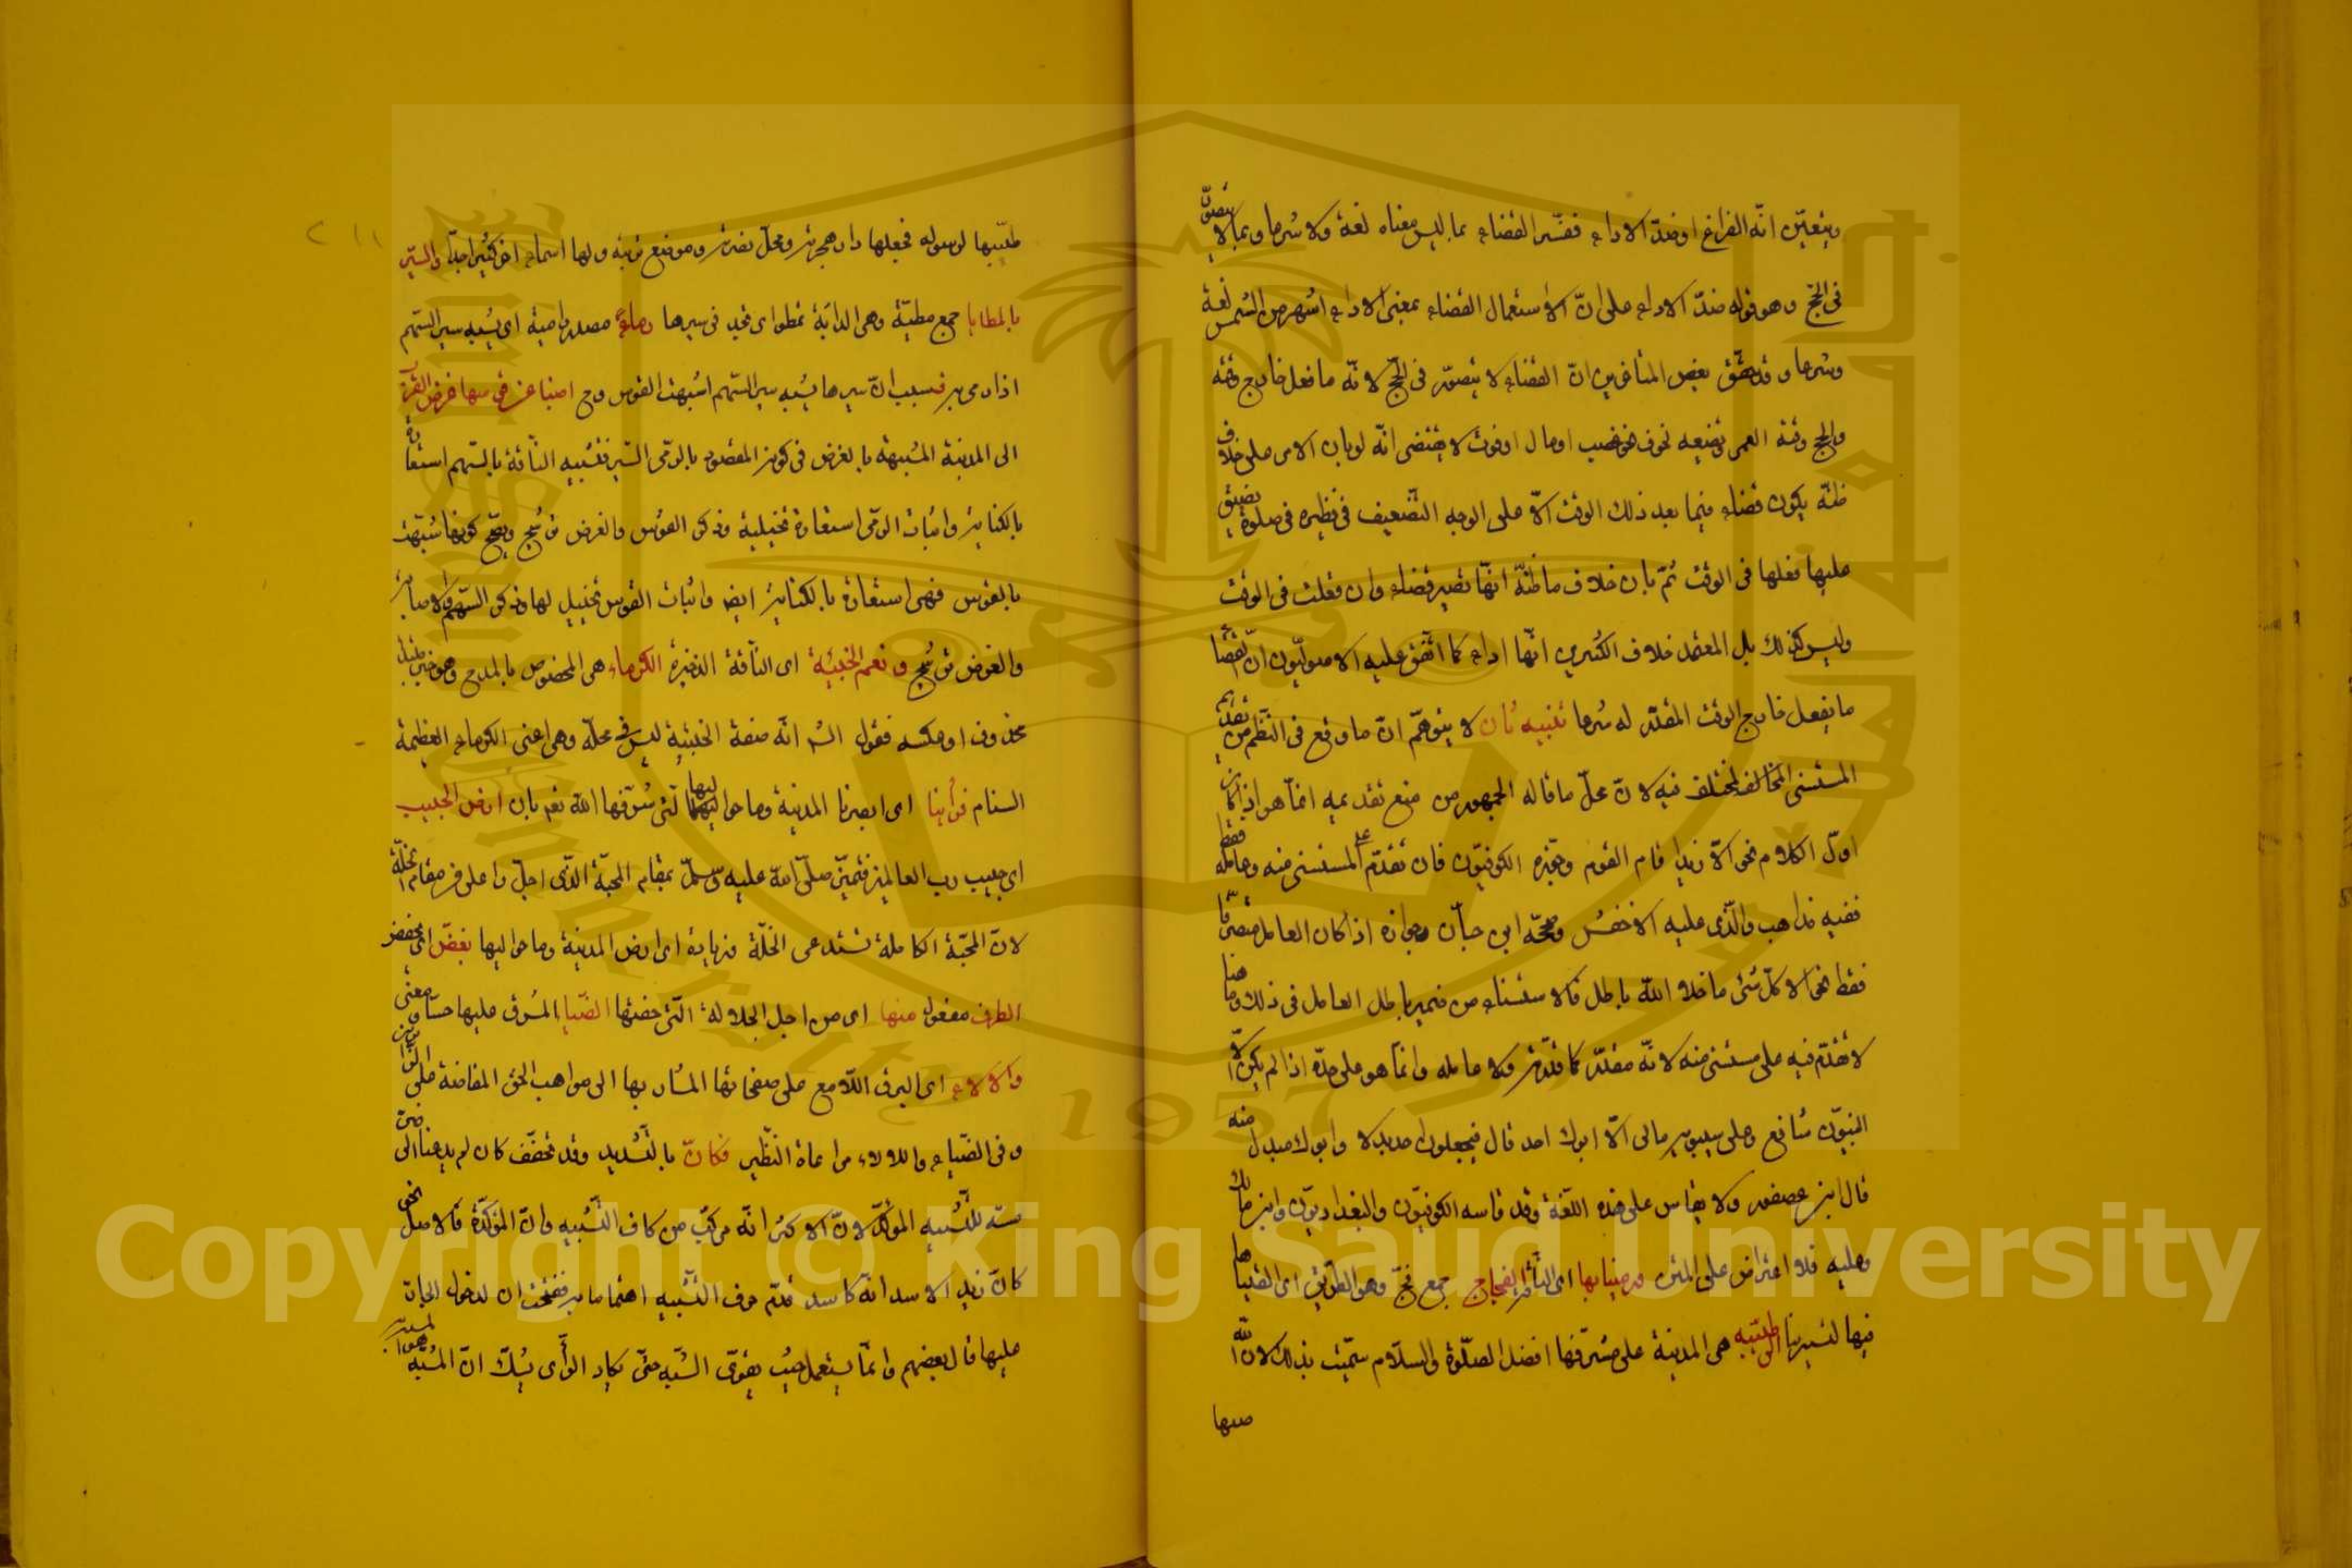 ويتعين انه الفراغ او ضد الاداء ففسر القضاء بما ليس معناه لغة ولا شرعا وبما لا يتصور
في الحج وهو قوله ضد الاداء على ان الاستعمال القضاء بمعنى الاداء اشهر من الشمس لغة
وشرعا و بعض المتأخرين ان القضاء لا يتصور في الحج لانه ما فعل خارج وقته
والحج وقته العمر وتضيقه لخوف نحو غصب او مال او فوت لا يقتضى انه لو بان الامر على خلاف
ظنه يكون قضاء فيما بعد ذلك الوقت الا على الوجه الضعيف في نظيره في صلوة يضيق
عليها فعلها في الوقت ثم بان خلاف ما ظنه انها تصير قضاء وان فعلت في الوقت
وليس كذلك بل المعتمد خلاف الكثيرين انها اداء كما اتفق عليه الاصوليون ان القضاء
ما يفعل خارج الوقت المقدر له شرعا تنبيه ثان لا يتوهم ان ما وقع في النظم من تقديم
المستثنى المخالف مختلف فيه لان محل ما قاله الجمهور من منع تقديمه انما هو اذا كان
اول الكلام نحو الا زيدا قام القوم وجوزه الكوفيون فان تقدم على المستثنى منه وعامله فقط
ففيه مذاهب والذى عليه الاخفش وصححه ابي حيان جوازه اذا كان العامل متصرفا
فقط نحو الا كل شئ ما خلا الله باطل فالاستثناء من ضمير باطل العامل في ذلك وما هنا
لا تقدم فيه على مستثنى منه لانه مقدر كما قدرته ولا عامله وانما هو على حدة اذا لم يكن الا
النبيون شافع وعلى سيبويه مالى الا ابوك احد قال فيجعلون احد بدلا وابوك مبدل منه
قال ابن عصفور ولا يقاس على هذه اللغة وقد قاسه الكوفيون والبغداديون وابن مالك
وعليه فلا اعتراض على المتن ورمينا بها اى الناقة الفجاج جمع فج وهو الطريق اى القيناها
فيها لتسير بنا الى طيبة هى المدينة على مشرفها افضل الصلوة والسلام سميت بذلك لان الله
طيبها لرسوله فجعلها دار هجرته ومحل نصرته وموضع تربته ولها اسماء اخر كثيرا جدا والسير
بالمطايا جمع مطية وهى الدابة تمطو اى تجد في سيرها رماء مصدر راميه اى يشبه سير السهم
اذا رمى به فبسبب ان سيرها يشبه سير السهم اشبهت القوس وح اصبنا عن قوسها غرض القرب
الى المدينة المشبهة بالغرض في كون المقصود بالرمى السير فتشبيه الناقة بالسهم استعارة
بالكناية واثبات الرمى استعارة تخييلية وذكر القوس والغرض ترشيح ويصح كونها شبهت
بالقوس فهى استعارة بالكناية ايضا واثبات القوس تخييل لها وذكر السهم والاصابة
والغرض ترشيح ونعم الخبيئة اى الناقة الذخيرة الكوماء هى المخصوص بالمدح وهو خبر مبتدأ
محذوف او عكسه فقول الش انه صفة الخبيئة ليس في محله وهى اعنى الكوماء العظيمة
السنام فرأينا اى ابصرنا المدينة وما حواليها التى شرفها الله نعم بان ارض الحبيب
اى حبيب رب العالمين فتميز صلى الله عليه وسلم بمقام المحبة الذى اجل واعلى من مقام الخلة
لان المحبة الكاملة تستدعى الخلة وزيادة اى ارض المدينة وما حواليها بغض اى يخفض
الطرف مفعول منها اى من اجل الجلالة التى خصتها الضياء المشرق عليها حسا ومعنى
والالاء اى البرق اللامع على صفحاتها المشار بها الى مواهب الحق المفاضة على الزائرين
وفى الضياء واللالاء مراعاة النظير فكأن بالتشديد وقد تخفف كان لم يدعنا الى ضر
مسه للتشبيه المؤكد لان الاكثر انه مركب من كاف التشبيه وان المؤكدة فالاصل نحو
كأن زيد الاسد انه كاسد قدم حرف التشبيه اهتماما به ففتحت ان لدخول الجار
عليها قال بعضهم وانما يستعمل حيث يقوى الشبه حتى يكاد الرأى يشك ان المشبه هو المشبه به